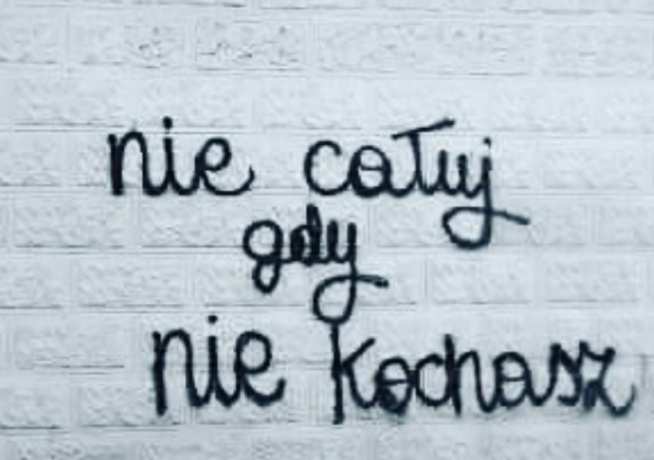 nie całuj
gdy
nie kochasz